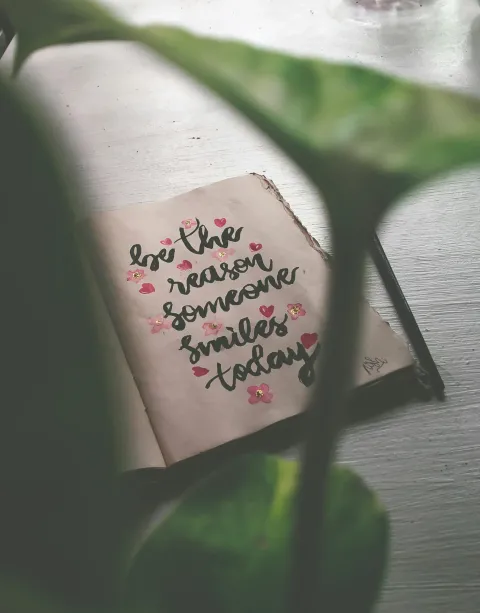 be the
reason
someone
smiles
today